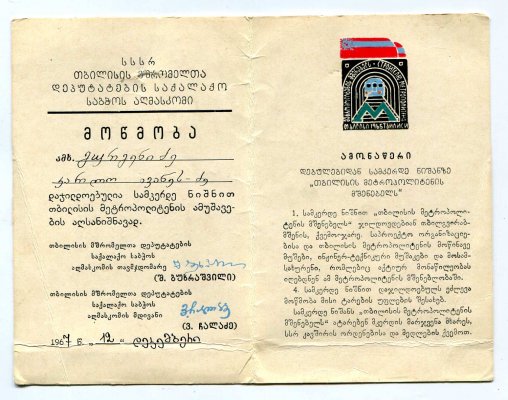 სსსრ
თბილისის მშრომელთა
დეპუტატების საქალაქო
საბჭოს აღმასკომი
მოწმობა
ამხ.
დაჯილდოებულია სამკერდე ნიშნით
თბილისის მეტროპოლიტენის ამუშავე-
ბის აღსანიშნავად.
თბილისის მშრომელთა დეპუტატების
საქალაქო საბჭოს
აღმასკომის თავმჯდომარე
(შ. ბუხრაშვილი)
თბილისის მშრომელთა დეპუტატების
საქალაქო საბჭოს
აღმასკომის მდივანი
(ვ. ჩალაძე)
1967 წ. „12" დეკემბერი
ამონაწერი
დებულებიდან სამკერდე ნიშანზე
„თბილისის მეტროპოლიტენის
მშენებელს"
1. სამკერდე ნიშნით „თბილისის მეტროპოლი-
ტენის მშენებელს" ჯილდოვდებიან თბილგვირაბ-
მშენის, ქვემოიჯარე, საპროექტო ორგანიზაციე-
ბისა და თბილისის მეტროპოლიტენის მოწინავე
მუშები, ინჟინერ-ტექნიკური მუშაკები და მოსამ-
სახურენი, რომლებიც აქტიურ მონაწილეობას
იღებდნენ ამ მეტროპოლიტენის მშენებლობაში.
4. სამკერდე ნიშნით დაჯილდოებულს ეძლევა
მოწმობა მისი ტარების უფლების შესახებ.
სამკერდე ნიშანს „თბილისის მეტროპოლიტენის
მშენებელს" ატარებენ მკერდის მარჯვენა მხარეს,
სსრ კავშირის ორდენებისა და მედლების ქვემოთ.